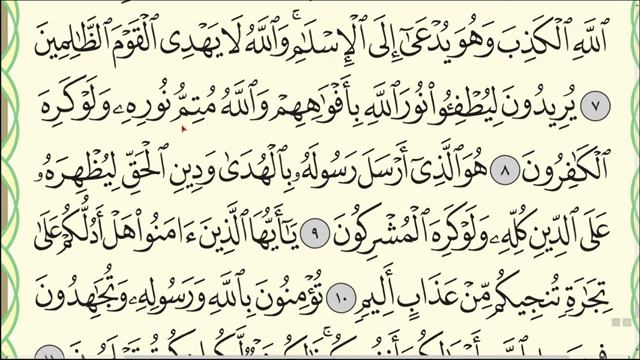 ٱللَّهِ ٱلْكَذِبَ وَهُوَ يُدْعَىٰٓ إِلَى ٱلْإِسْلَٰمِ ۚ وَٱللَّهُ لَا يَهْدِى ٱلْقَوْمَ ٱلظَّٰلِمِينَ
٧ يُرِيدُونَ لِيُطْفِـُٔوا۟ نُورَ ٱللَّهِ بِأَفْوَٰهِهِمْ وَٱللَّهُ مُتِمُّ نُورِهِۦ وَلَوْ كَرِهَ
ٱلْكَٰفِرُونَ ٨ هُوَ ٱلَّذِىٓ أَرْسَلَ رَسُولَهُۥ بِٱلْهُدَىٰ وَدِينِ ٱلْحَقِّ لِيُظْهِرَهُۥ
عَلَى ٱلدِّينِ كُلِّهِۦ وَلَوْ كَرِهَ ٱلْمُشْرِكُونَ ٩ يَٰٓأَيُّهَا ٱلَّذِينَ ءَامَنُوا۟ هَلْ أَدُلُّكُمْ عَلَىٰ
تِجَٰرَةٍ تُنجِيكُم مِّنْ عَذَابٍ أَلِيمٍ ١٠ تُؤْمِنُونَ بِٱللَّهِ وَرَسُولِهِۦ وَتُجَٰهِدُونَ